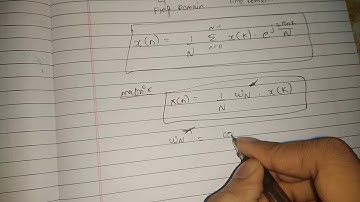 Freq Domain Time Domain
x(n) = 1/N N-1 Σ n=0 x(k) . e^j2πnk/N
matrix
x(n) = 1/N WN* . x(k)
WN* =